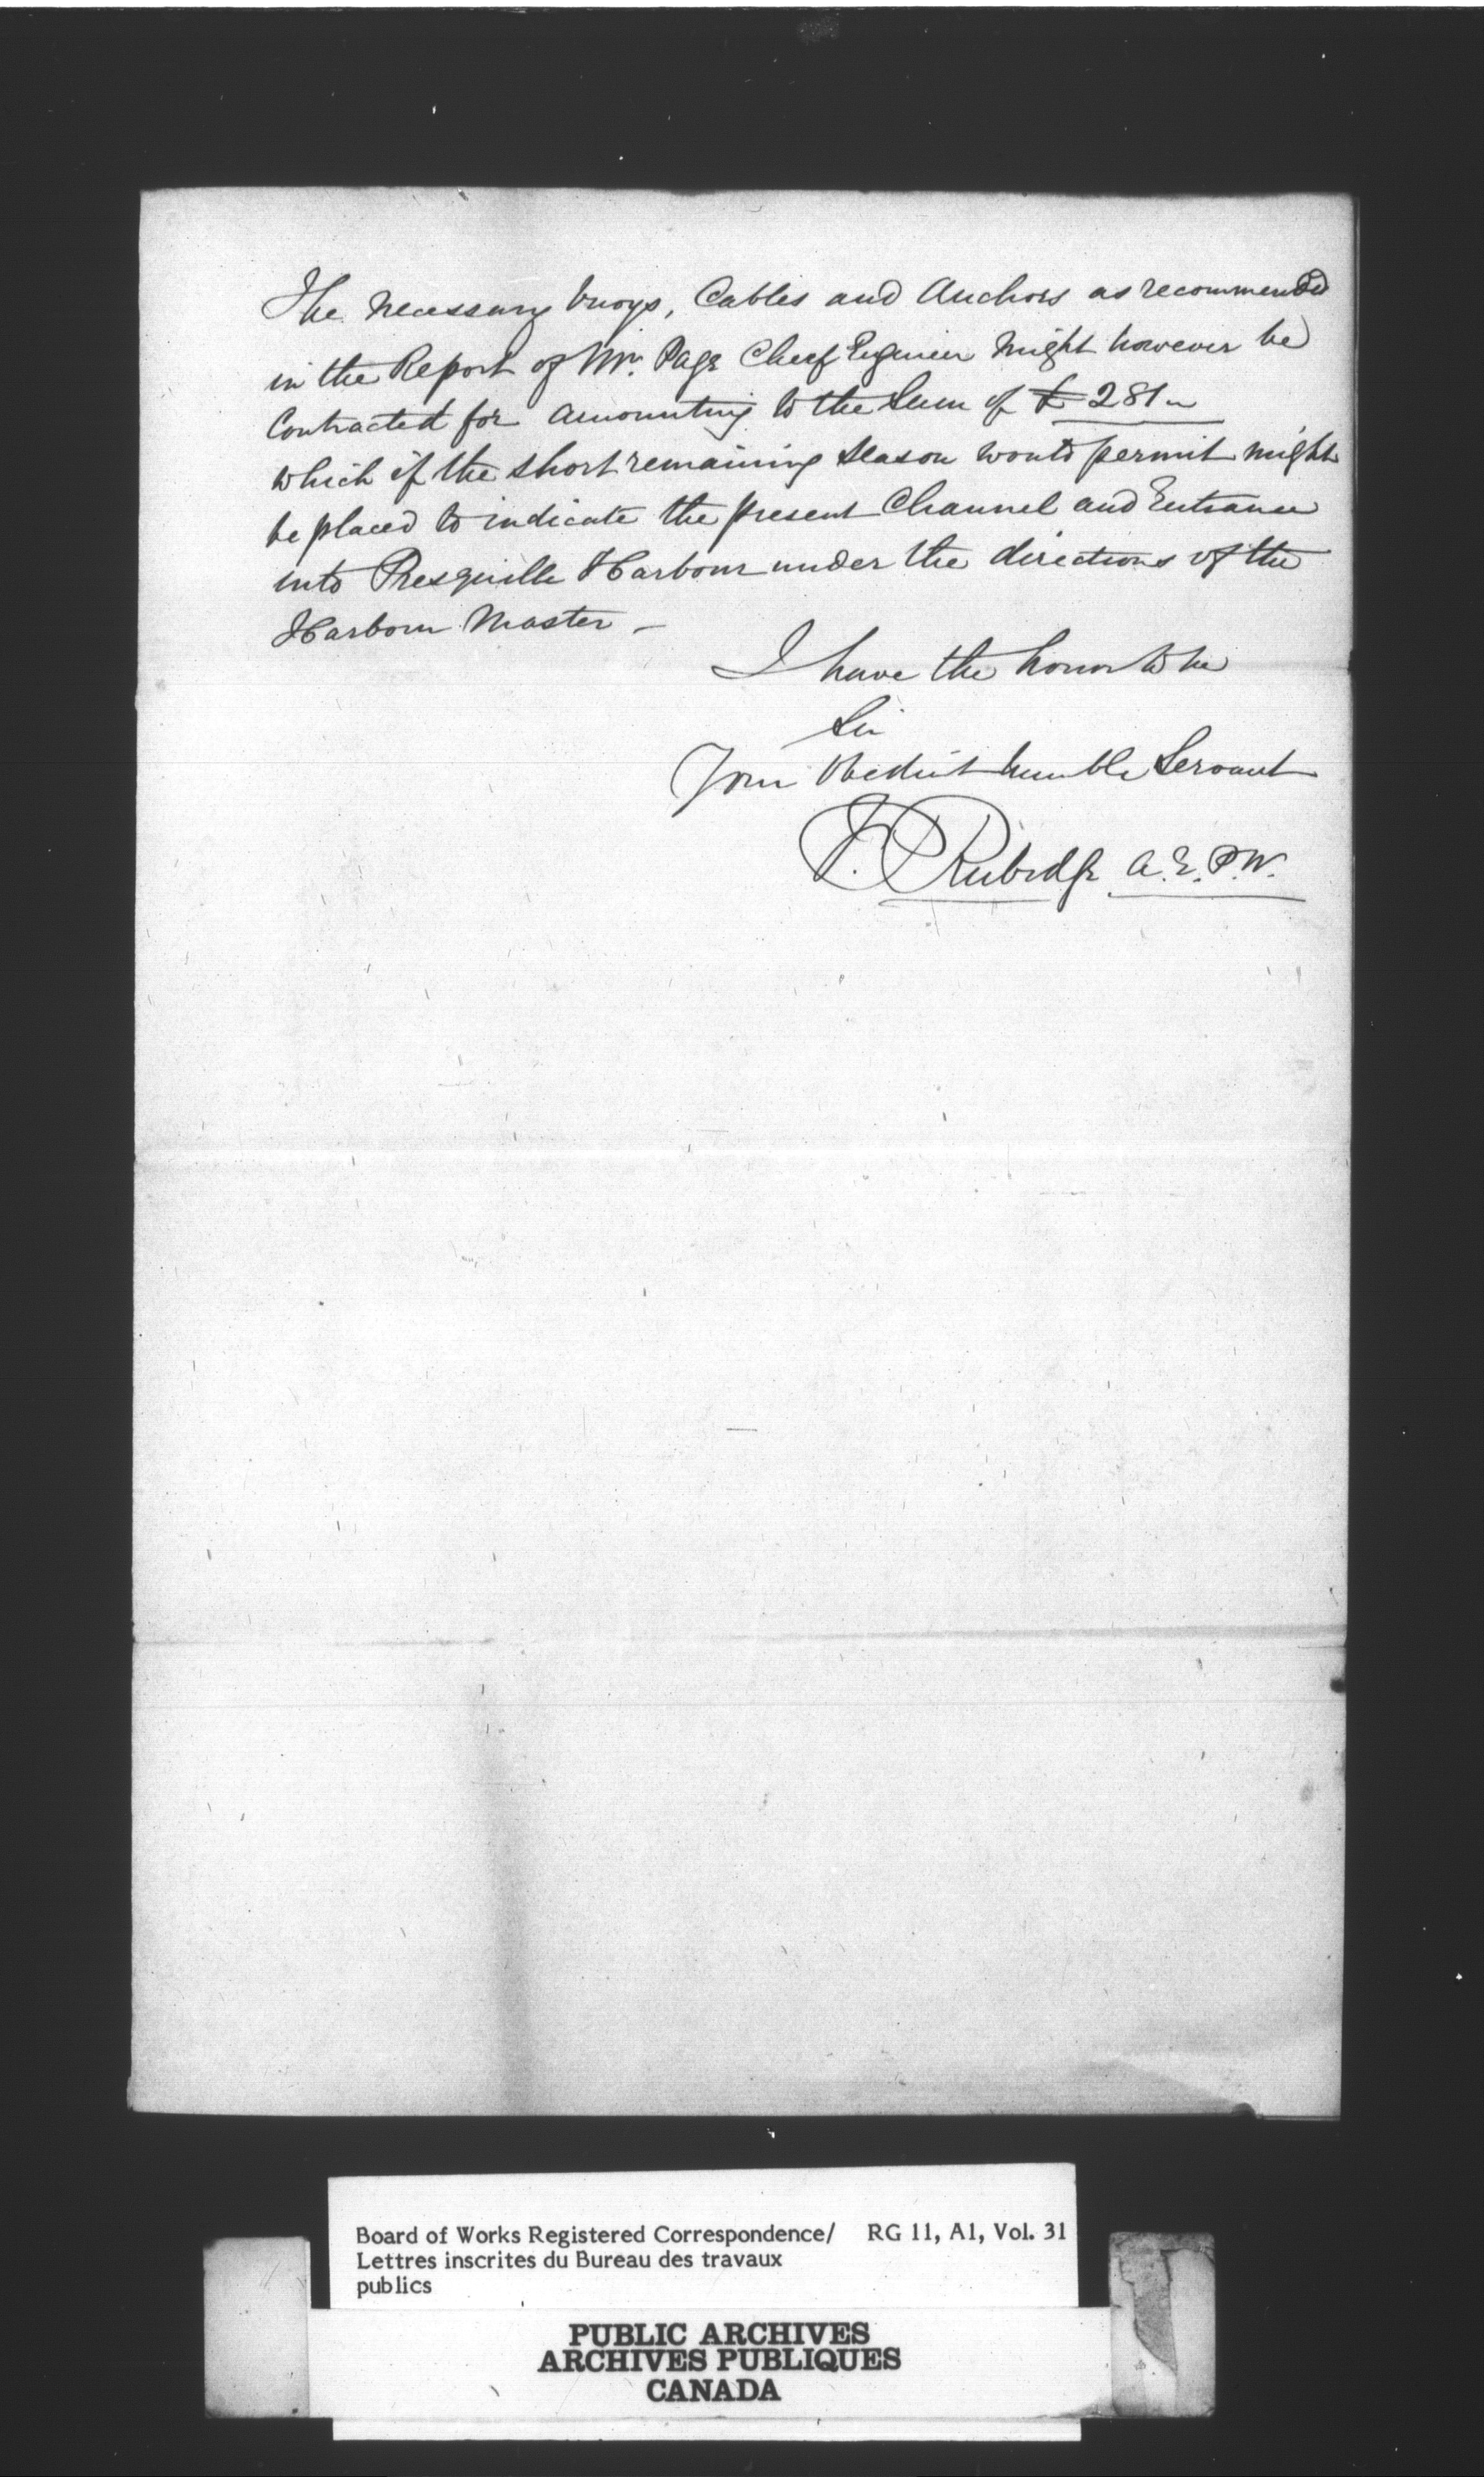 The necessary buoys, Cables and Anchors as recommended
in the Report of Mr. Page Cheif Engineer might however be
Contracted for amounting to the Sum of £ 281 „
which if the short remaining Season would permit might
be placed to indicate the present Channel and Entrance
into Presquille Harbour under the directions of the
Harbour Master –
I have the honor to be
Sir
Your Obedient humble Servant
F. P. Rubidge A. E. P. W.
Board of Works Registered Correspondence/ RG 11, A1, Vol. 31
Lettres inscrites du Bureau des travaux
publics
PUBLIC ARCHIVES
ARCHIVES PUBLIQUES
CANADA